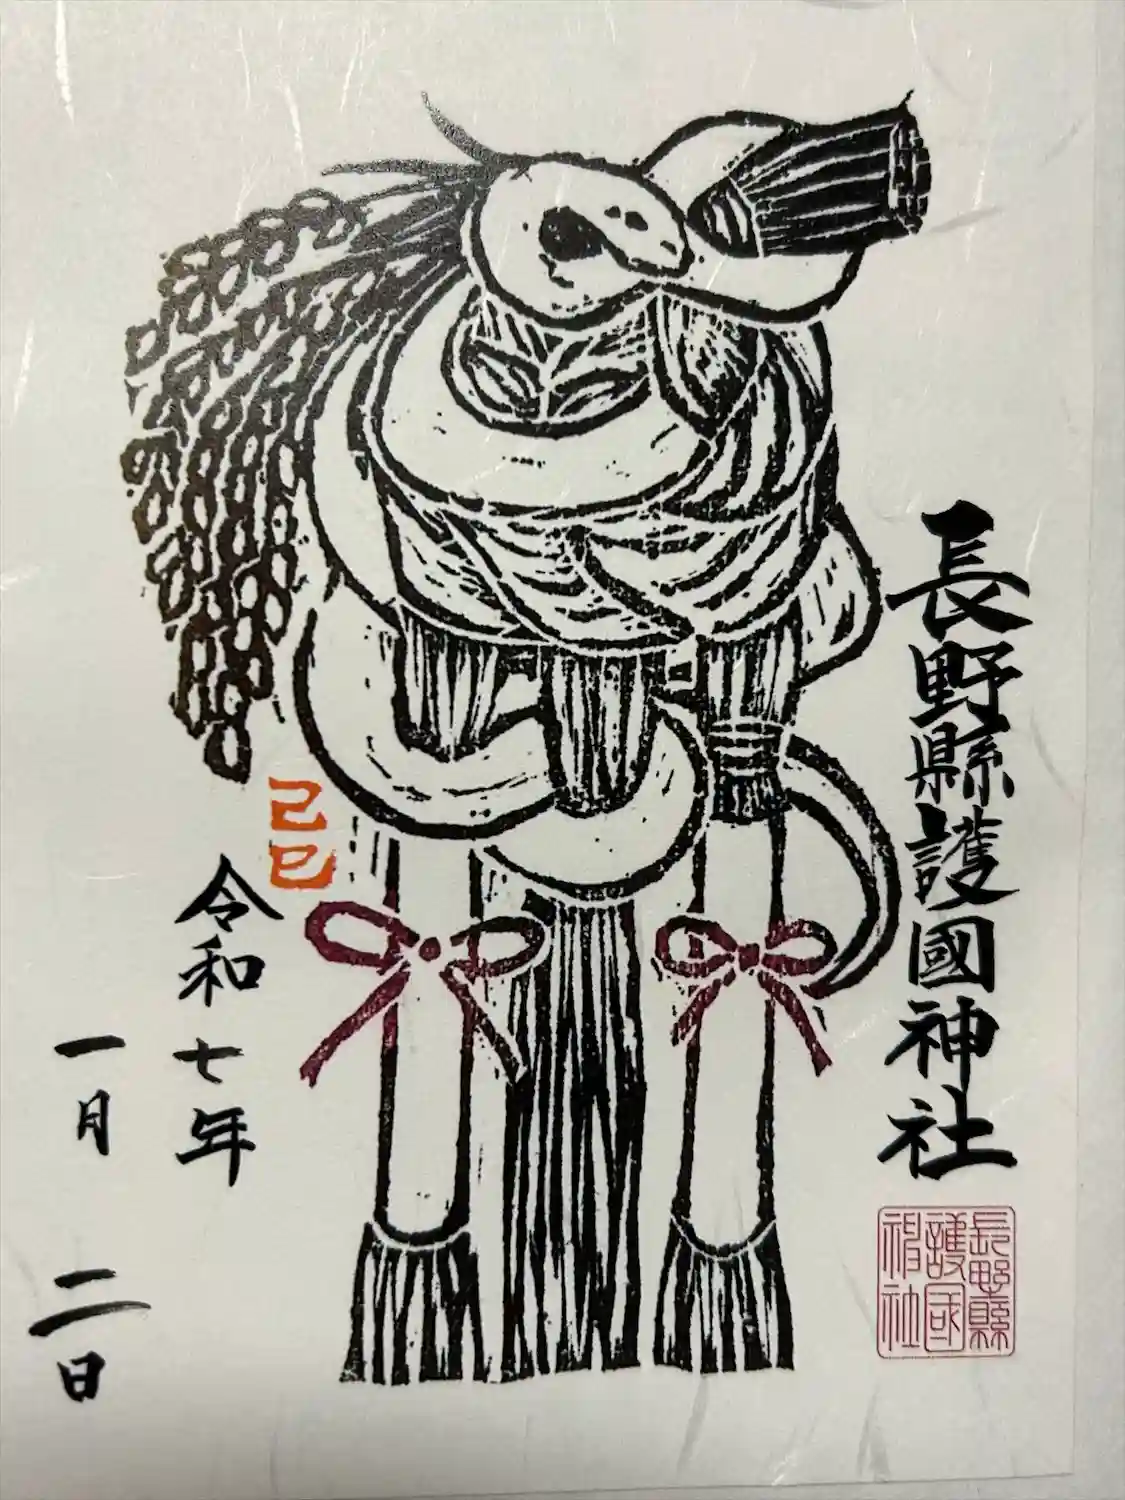 長野縣護國神社
長野縣
護國
神社
己巳
令和七年
一月二日